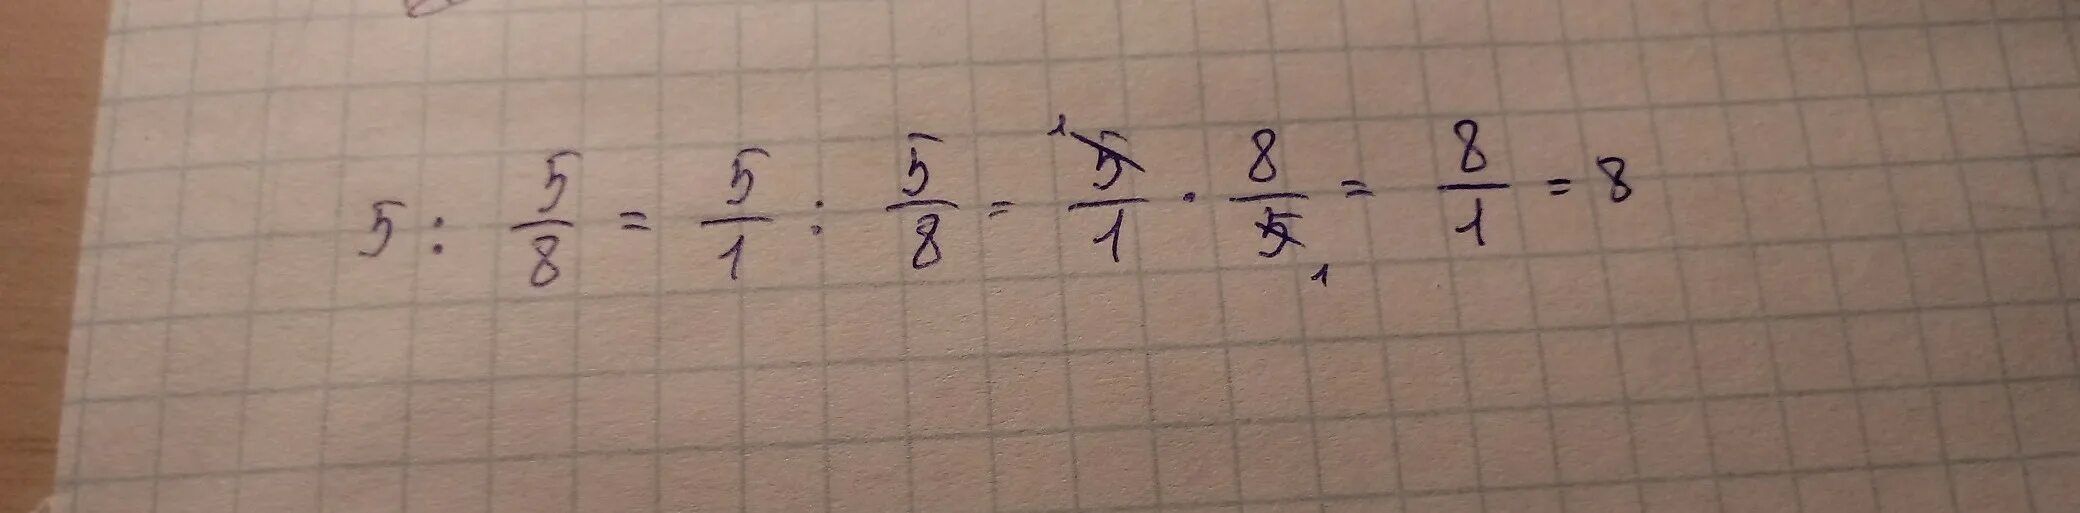 5 : 5/8 = 5/1 : 5/8 = 5/1 · 8/5 = 8/1 = 8